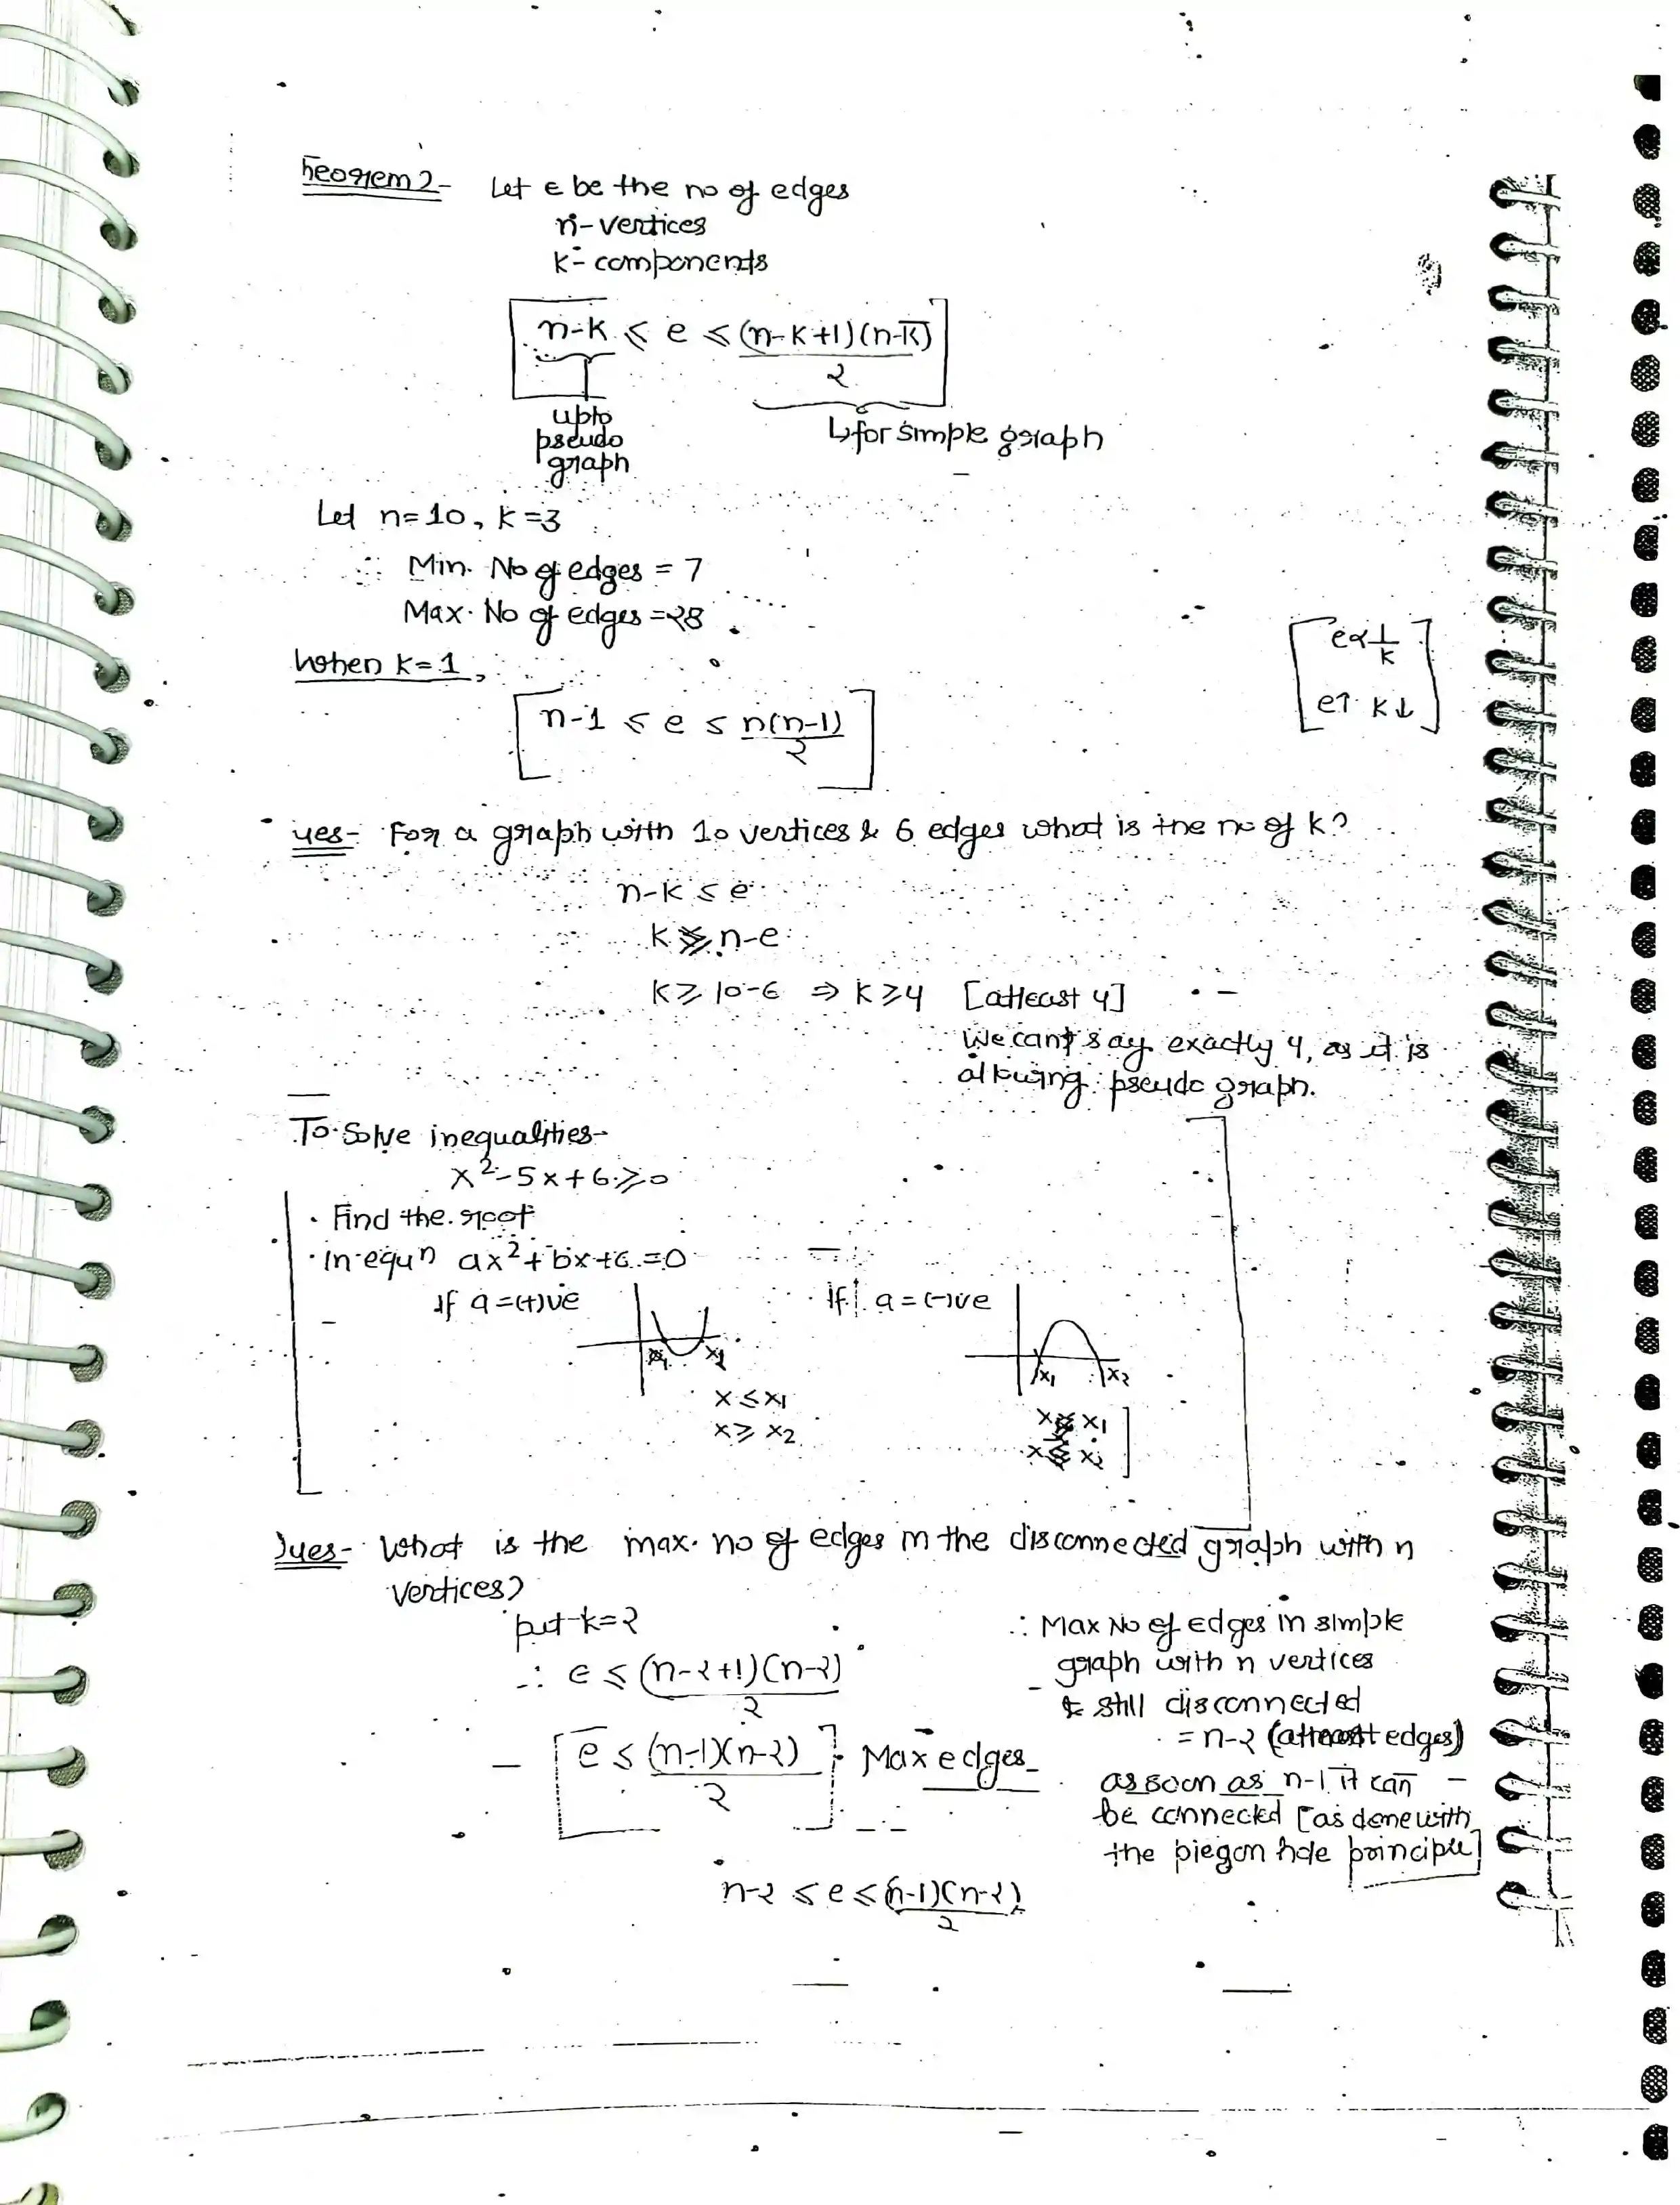 heorem 2- Let e be the no of edges
n- vertices
k- components
n-k ≤ e ≤ (n-k+1)(n-k)
2
upto
pseudo
graph
↳ for simple graph
Let n=10, k=3
∴ Min. No of edges = 7
Max. No of edges = 28
When k=1,
e∝1/k
e↑ k↓
n-1 ≤ e ≤ n(n-1)
2
ues- For a graph with 10 vertices & 6 edges what is the no of k?
n-k ≤ e
k ≥ n-e
k ≥ 10-6 ⇒ k ≥ 4 [atleast 4]
We cant say exactly 4, as it is
allowing pseudo graph.
To Solve inequalities-
x²-5x+6 ≥ 0
· Find the root
· In equn ax²+bx+c = 0
If a=(+)ve
If a=(-)ve
x1 x2
x1 x2
x ≤ x1
x ≥ x2
x ≥ x1
x ≤ x2
Ques- What is the max. no of edges in the disconnected graph with n
vertices?
put k=2
∴ e ≤ (n-2+1)(n-2)
2
e ≤ (n-1)(n-2)
2
Max edges
∴ Max No of edges in simple
graph with n vertices
& still disconnected
= n-2 (atmost edges)
as soon as n-1 it can
be connected [as done with
the piegon hole principle]
n-2 ≤ e ≤ (n-1)(n-2)
2